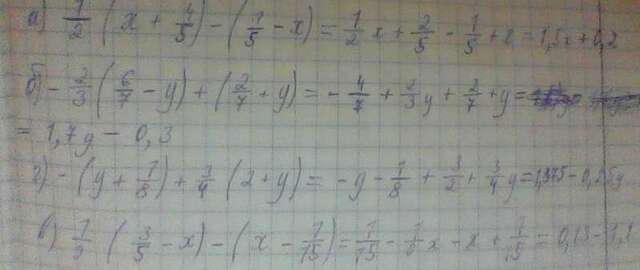 а) 1/2 (x + 4/5) - (1/5 - x) = 1/2 x + 2/5 - 1/5 + x = 1,5x + 0,2
б) - 2/3 (6/7 - y) + (2/7 + y) = - 4/7 + 2/3 y + 2/7 + y =
= 1,7y - 0,3
г) - (y + 1/8) + 3/4 (2 + y) = - y - 1/8 + 3/2 + 3/4 y = 1,375 - 0,25y
в) (3/5 - x) - (x - 1/15) = - x - x + 1/15 =